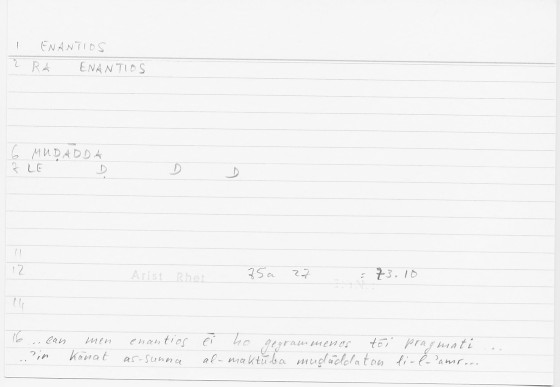 1 ENANTIOS
2 RA ENANTIOS
6 MUḌĀDDA
7 LE Ḍ D D
11
12 Arist Rhet 75a 27 : 73.10
14
16 ..ean men enantios ēi ho gegrammenos tōi pragmati ..
..'in kānat as-sunna al-maktūba muḍāddatan li-l-'amr...